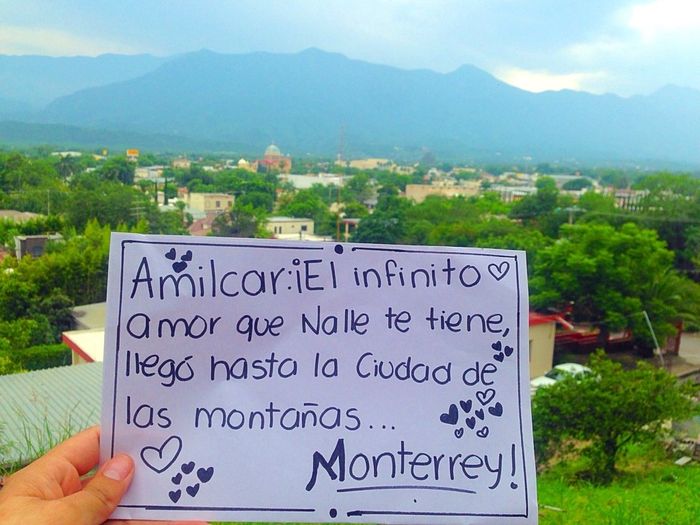 Amilcar:¡El infinito
amor que Nalle te tiene,
llegó hasta la Ciudad de
las montañas...
Monterrey!